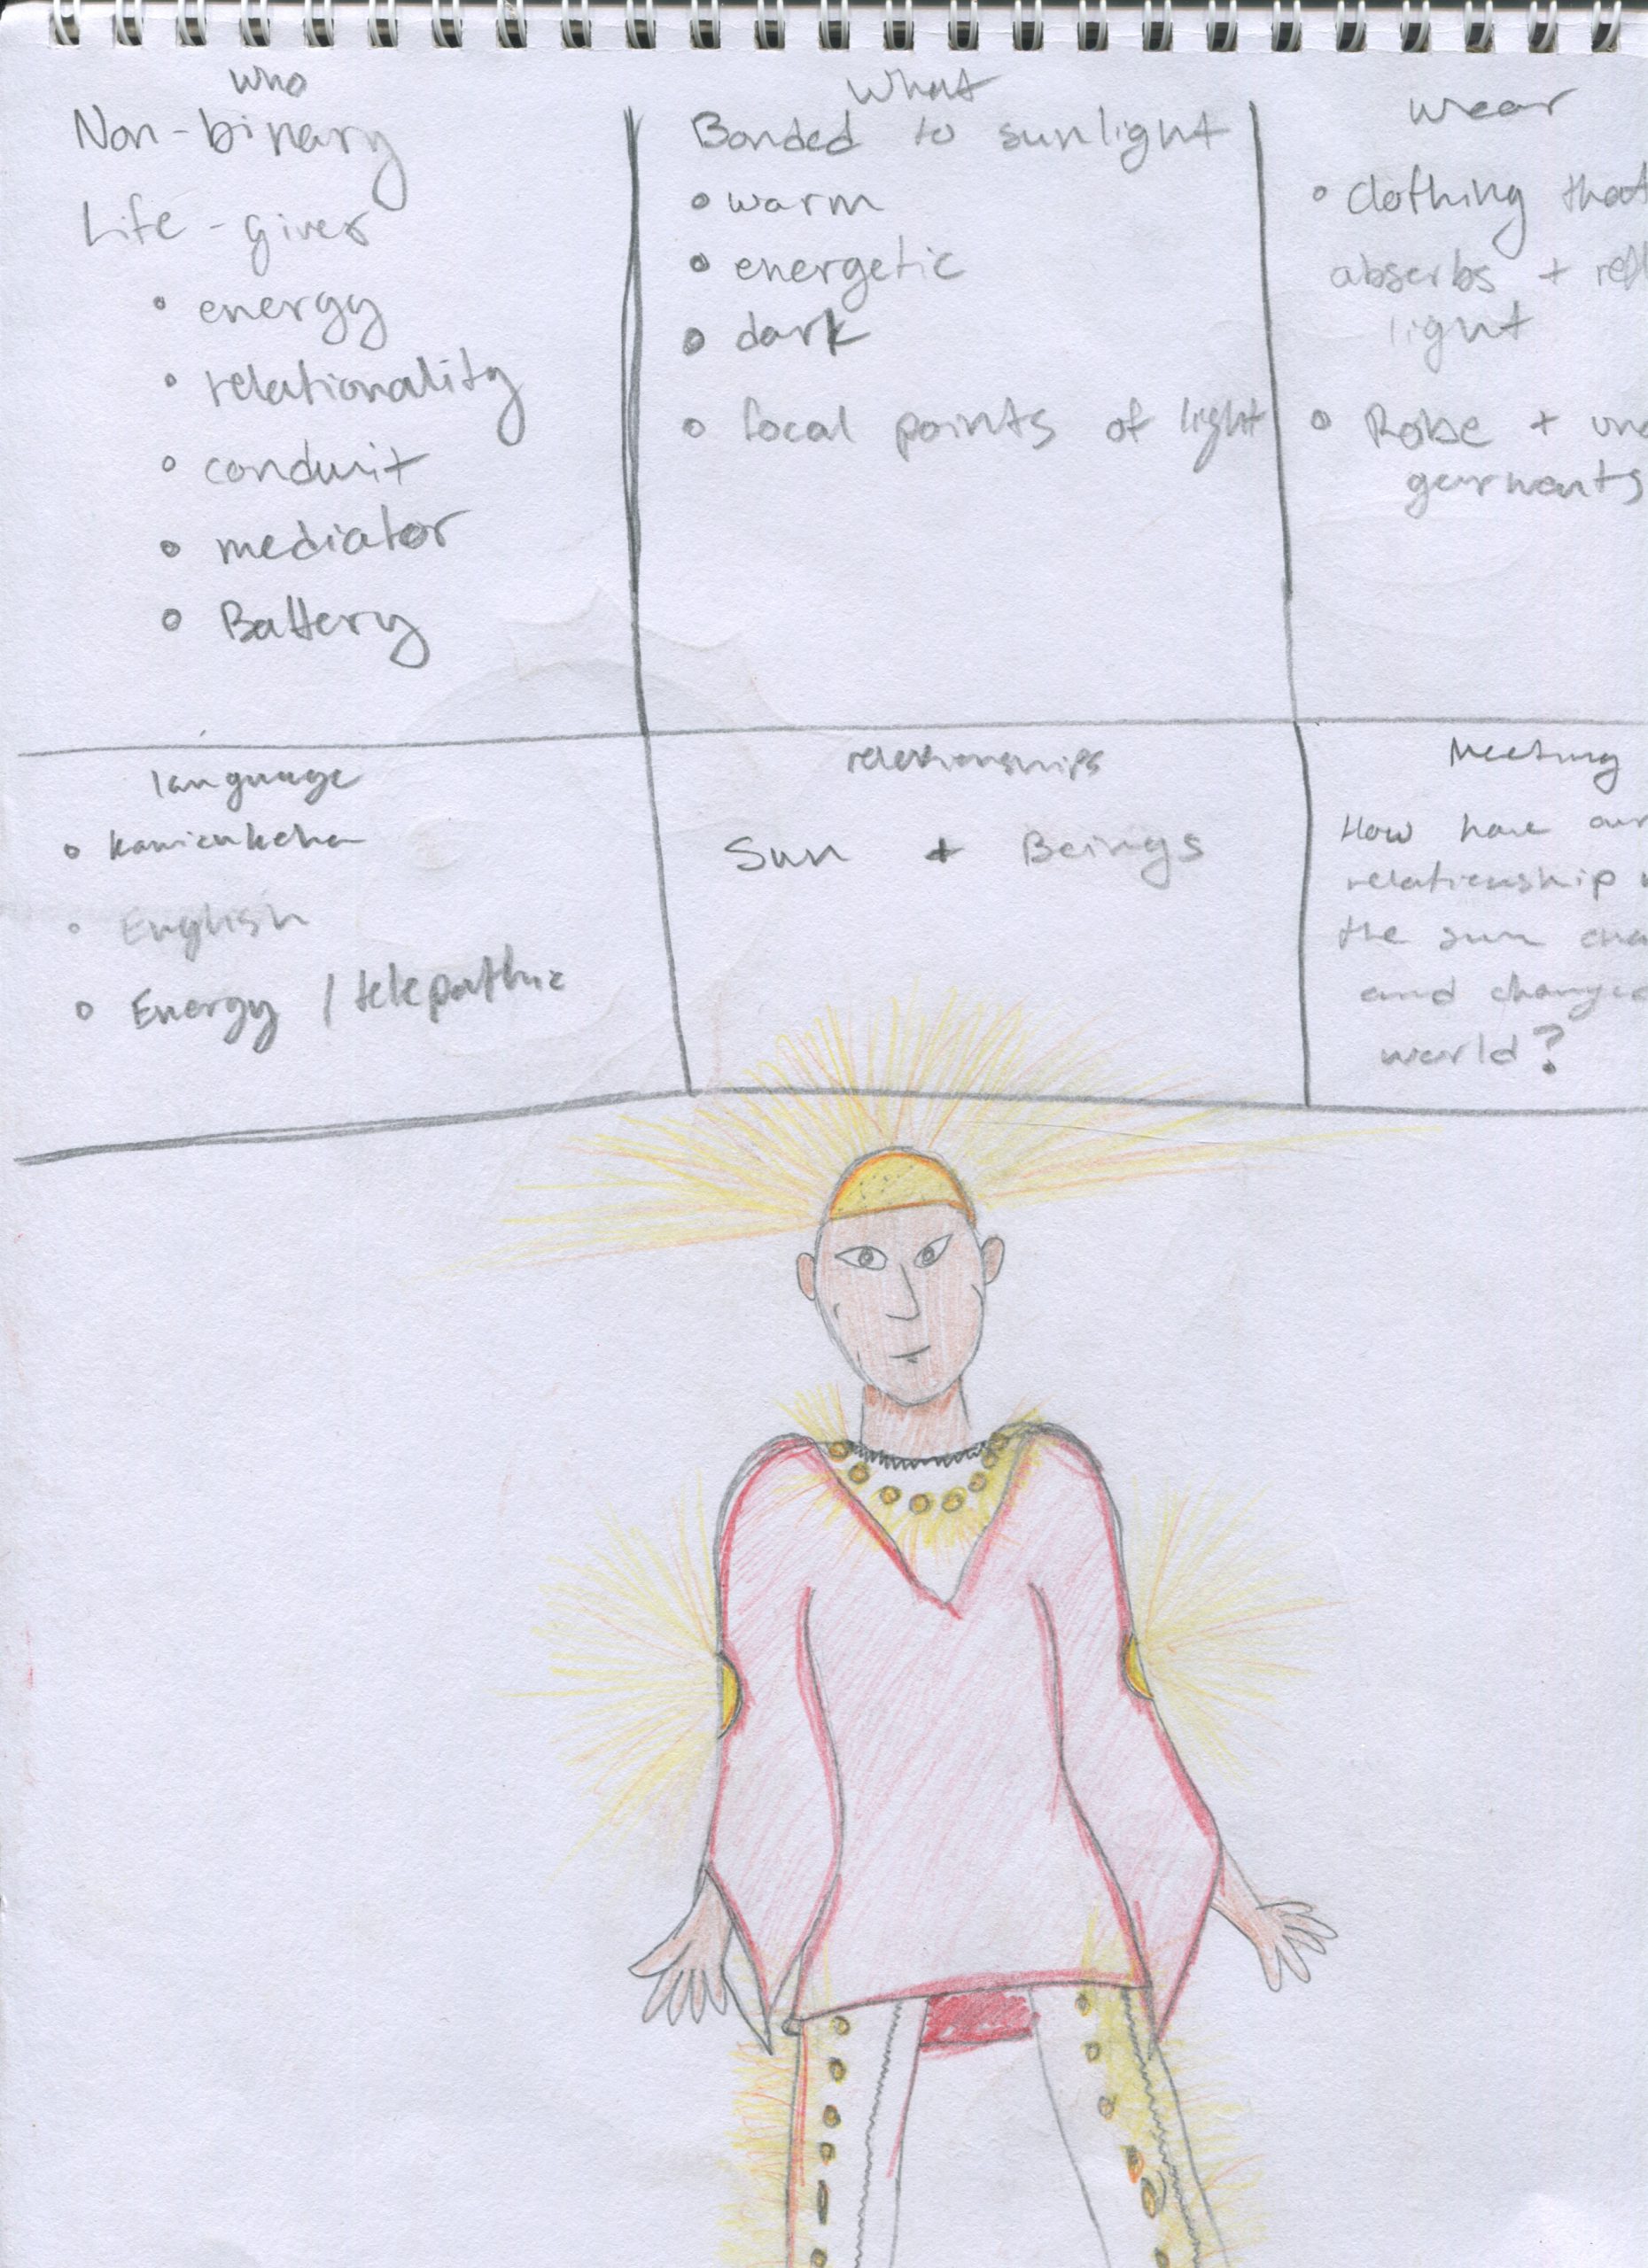 Who
Non-binary
Life-giver
• energy
• relationality
• conduit
• mediator
• Battery
What
Bonded to sunlight
• warm
• energetic
• dark
• focal points of light
Wear
• Clothing that
absorbs + refl
light
• Robe + und
garments
language
• Kanienkeha
• English
• Energy / telepathic
relationships
Sun + Beings
Meeting
How have our
relationship w
the sun cha
and changed
world?